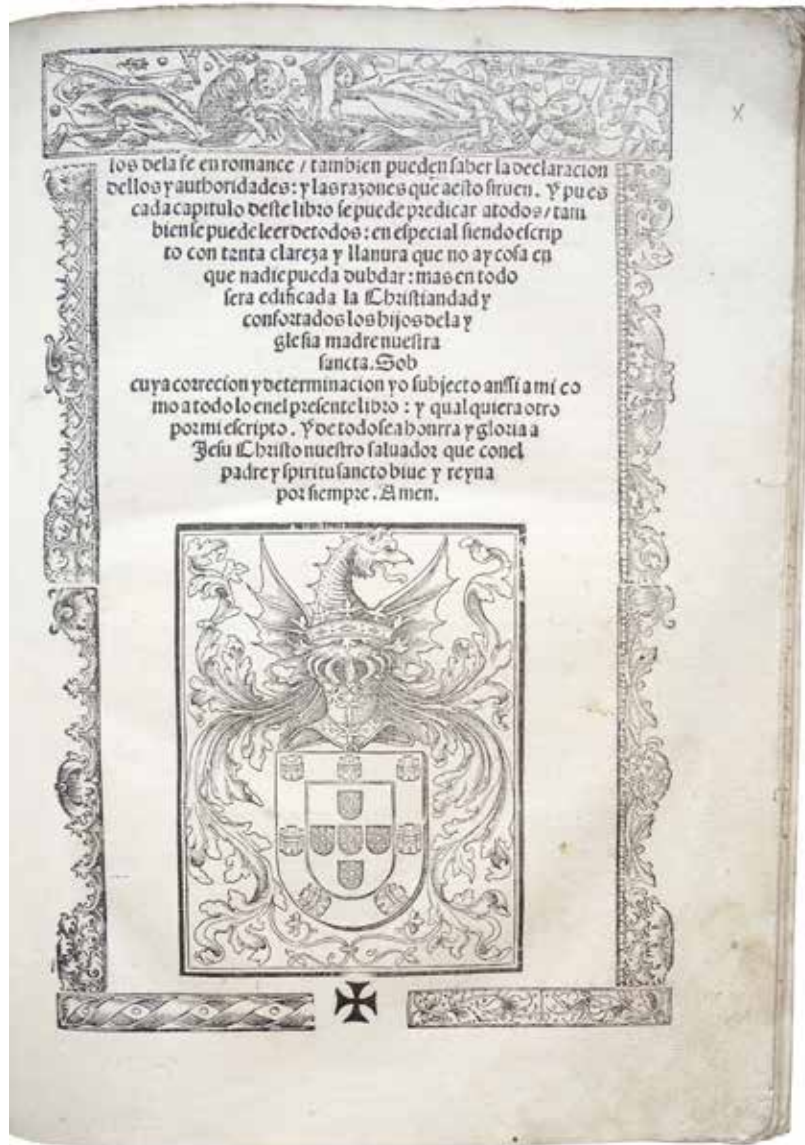 los dela fe en romance / tambien pueden saber la declaracion
dellos y authoridades: y las razones que aesto siruen. Y pues
cada capitulo deste libro se puede predicar atodos / tam
bien se puede leer de todos: en especial siendo escrip
to con tanta clareza y llanura que no ay cosa en
que nadie pueda dubdar: mas en todo
sera edificada la Christiandad y
confortados los hijos dela y
glesia madre nuestra
sancta. Sob
cuya correcion y determinacion yo subjecto anssi a mi co
mo a todo lo enel presente libro: y qualquiera otro
por mi escripto. Y de todo sea honrra y gloria a
Jesu Christo nuestro saluador que conel
padre y spiritu sancto biue y reyna
por siempre. Amen.